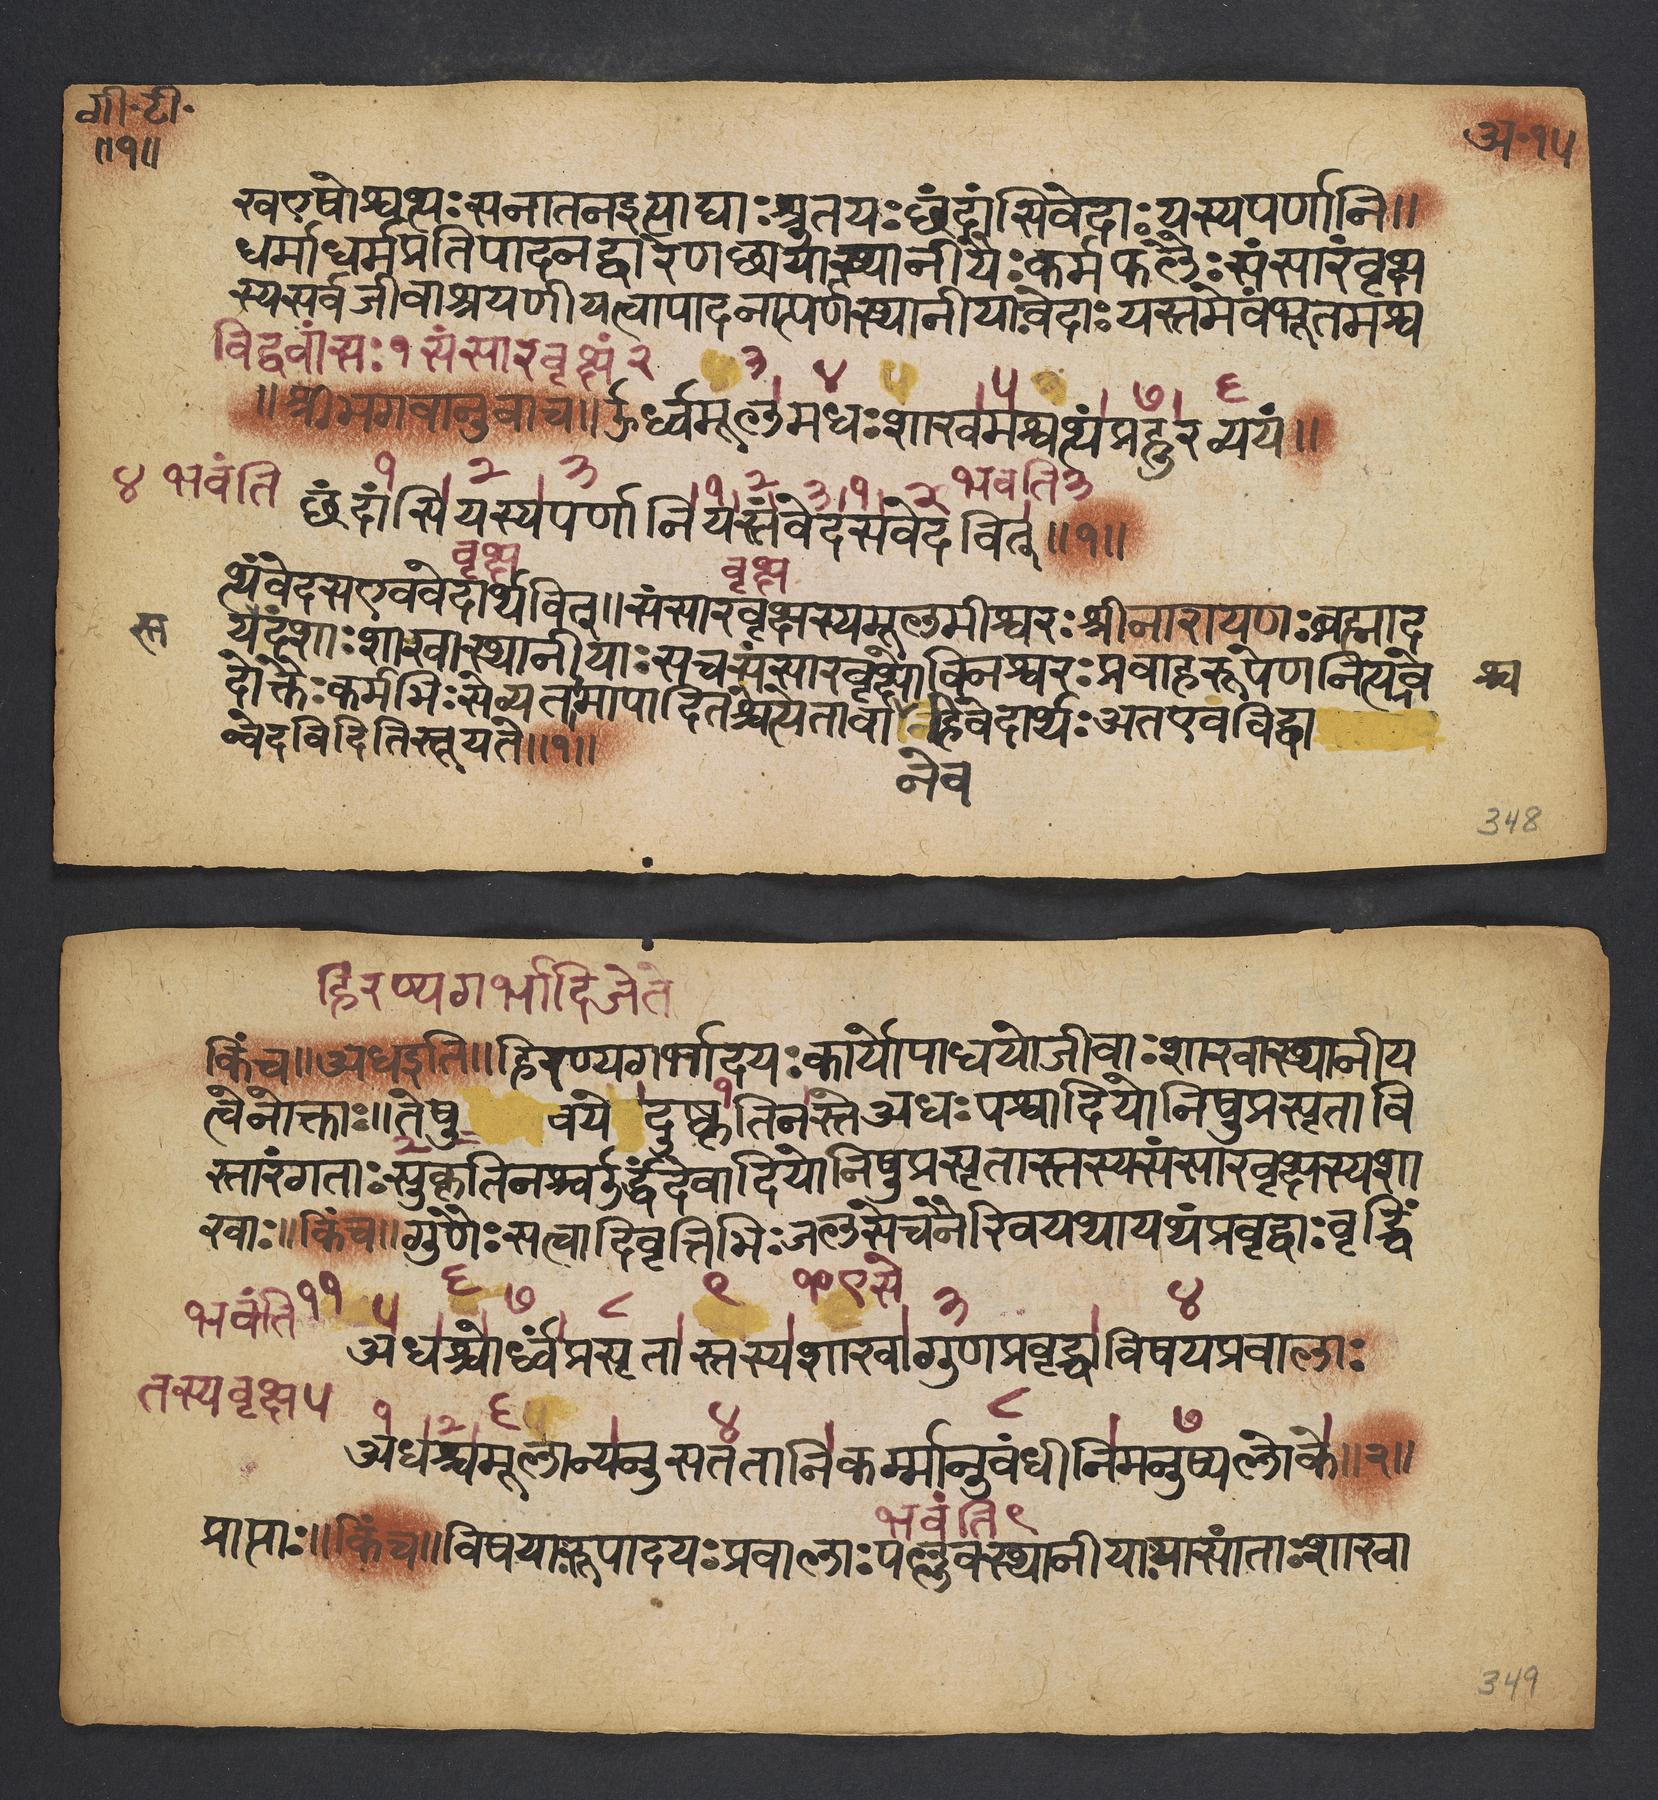 गी॰टी॰
॥१॥
अ॰१५
खएषोश्वत्थः सनातनइत्याद्याः श्रुतयः छंदांसिवेदाः यस्यपर्णानि॥
धर्माधर्मप्रतिपादनद्वारेणछायास्थानीयैः कर्मफलैः संसारवृक्ष
स्यसर्वजीवाश्रयणीयत्वापादनात्पर्णस्थानीयावेदाः यस्तमेवंभूतमश्व
विद्वांसः १ संसारवृक्षं २ ३ ४ ५ ५ ७ ६
॥श्रीभगवानुवाच॥ ऊर्ध्वमूलमधःशाखमश्वत्थंप्राहुरव्ययं॥
४ भवंति १ २ ३ १ २ ३ १ २ भवति ३
छंदांसियस्यपर्णानियस्तंवेदसवेदवित्॥१॥
वृक्ष वृक्ष
त्थंवेदसएववेदार्थवित्॥संसारवृक्षस्यमूलमीश्वरः श्रीनारायणः ब्रह्माद
स्त यंदंशाः शाखास्थानीयाः सचसंसारवृक्षोविनश्वरः प्रवाहरूपेणनित्यवे श्च
दोक्तैः कर्मभिः सेव्यतामापादितश्चत्येतावा हिवेदार्थः अतएवविद्वा
न्वेदविदितिस्तूयते॥१॥
नेव
348
हिरण्यगर्भादिजेते
किंच॥अधइति॥हिरण्यगर्भादयः कार्योपाधयोजीवाः शाखास्थानीय
त्वेनोक्ताः॥तेषु चये दुष्कृतिनस्तेअधः पश्वादियोनिषुप्रसृतावि
स्तारंगताः सुकृतिनश्चर्ऊर्द्ध्वंदेवादियोनिषुप्रसृतास्तस्यसंसारवृक्षस्यशा
खाः॥किंच॥गुणैः सत्वादिवृत्तिभिः जलसेचनैरिवयथायथंप्रवृद्धाः वृद्धिं
भवंति ११ ५ ६ ७ ८ ९ ३ ४
अधश्चोर्ध्वंप्रसृतास्तस्यशाखागुणप्रवृद्धाविषयप्रवालाः
तस्यवृक्ष ५ १ २ ६ ४ ८ ७
अधश्चमूलान्यनुसंततानिकर्म्मानुबंधीनिमनुष्यलोके॥२॥
भवंति ९
प्राप्ताः॥किंच॥विषयारूपादयः प्रवालाः पल्लवस्थानीयायासांताः शाखा
349